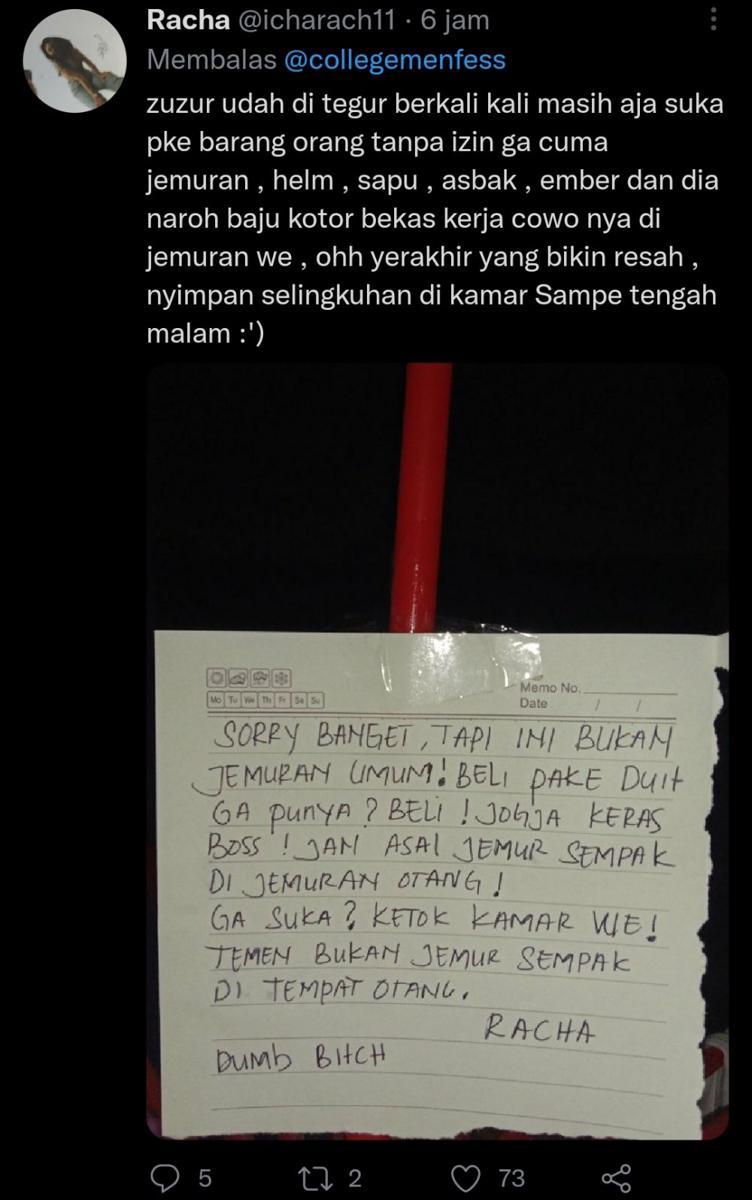 Racha @icharach11 · 6 jam
Membalas @collegemenfess
zuzur udah di tegur berkali kali masih aja suka
pke barang orang tanpa izin ga cuma
jemuran , helm , sapu , asbak , ember dan dia
naroh baju kotor bekas kerja cowo nya di
jemuran we , ohh yerakhir yang bikin resah ,
nyimpan selingkuhan di kamar Sampe tengah
malam :')
Memo No.
Mo Tu We Th Fr Sa Su
Date / /
SORRY BANGET, TAPI INI BUKAN
JEMURAN UMUM! BELI PAKE DUIT
GA PUNYA? BELI! JOGJA KERAS
BOSS! JAN ASAl JEMUR SEMPAK
DI JEMURAN OTANG!
GA SUKA? KETOK KAMAR WE!
TEMEN BUKAN JEMUR SEMPAK
DI TEMPAT OTANG.
RACHA
DUMb BITCH
5 2 73